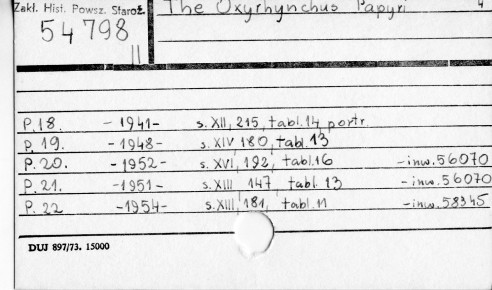 Zakł. Hist. Powsz. Staroż.
The Oxyrhynchus Papyri 4
54798
II
P. 18. - 1941 - s. XII, 215, tabl. 14 portr.
P. 19. - 1948 - s. XIV 180, tabl. 13
P. 20. - 1952 - s. XVI, 192, tabl. 16 - inw. 56070
P. 21. - 1951 - s. XIII 147, tabl. 13 - inw. 56070
P. 22 - 1954 - s. XIII, 181, tabl. 11 - inw. 58345
DUJ 897/73. 15000